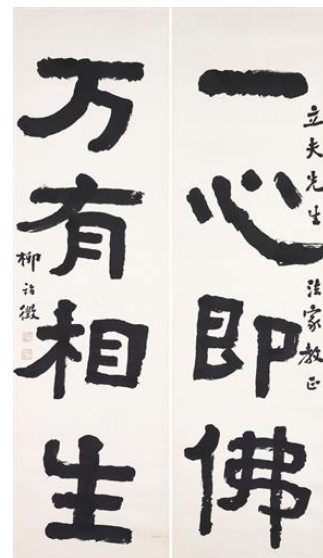 一心即佛
立夫先生 法家教正
万有相生
柳诒徵